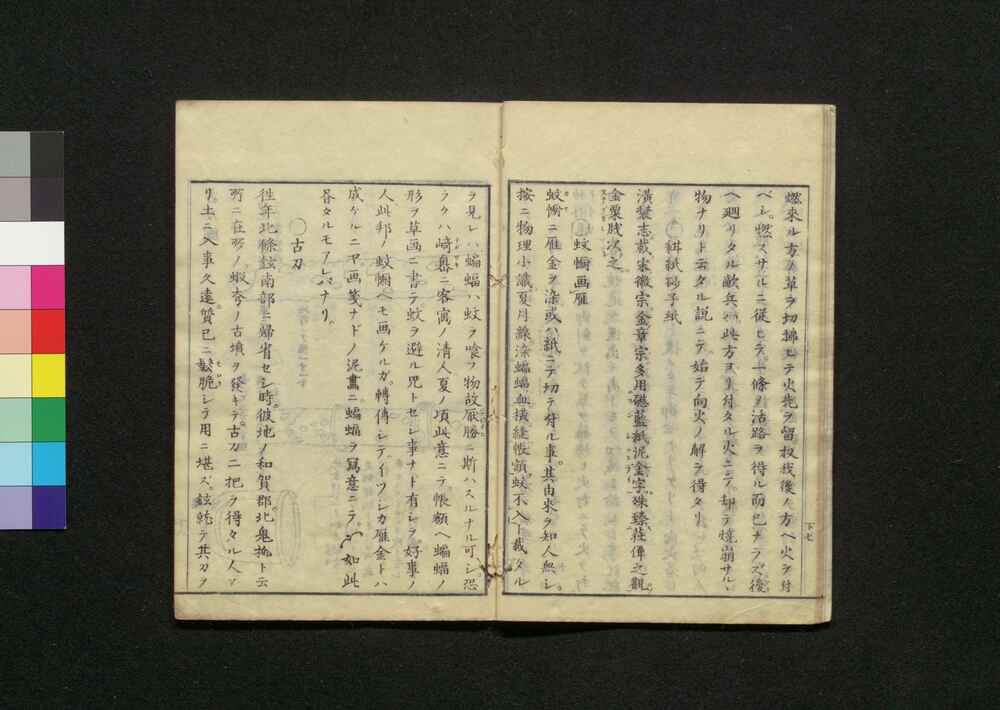 燃来ル方ノ草ヲ切拂ヒテ火先ヲ留扨我後ノ方ヘ火ヲ付
ベシ。燃スサルニ従ヒテ一條ノ活路ヲ得ル而已ナラズ後
ヘ廻リタル敵兵ハ此方ヨリ付タル火ニテ却テ焼崩サル、
物ナリト云タル説ニテ始テ向火ノ解ヲ得タリ
○紺紙砂子紙
潢糵志載宋徽宗金章宗多用磁藍紙泥金字殊臻荘偉之觀
金粟牋次之
○蚊㡡画雁
蚊㡡ニ雁金ヲ染或ハ紙ニテ切テ付ル事。其由来ヲ知人無シ。
按ニ物理小識夏月線染蝙蝠血横縫帳額蚊不入ト載タル
ヲ見レハ蝙蝠ハ蚊ヲ喰フ物故厭勝ニ斯ハスルナル可シ。恐
ラクハ﨑奧ニ客寓ノ清人夏ノ頃此意ニテ帳額ヘ蝙蝠ノ
形ヲ草画ニ書テ蚊ヲ避ル咒トセシ事ナド有シヲ好事ノ
人此邦ノ蚊㡡ヘモ画ケルガ。轉傳シテイツシカ雁金トハ
成ケルニヤ画箋ナドノ泥畫ニ蝙蝠ヲ寫意ニテ 如此
畧タルモアレバナリ。
○古刀
往年北條鉉南部ニ帰省セシ時。彼地ノ和賀郡北鬼柳ト云
所ニ在所ノ蝦夷ノ古墳ヲ發キテ。古刀二把ヲ得タル人アリ
土ニ入事久遠。質已ニ鬆脆シテ用ニ堪ズ。鉉統テ其刀ヲ
下七